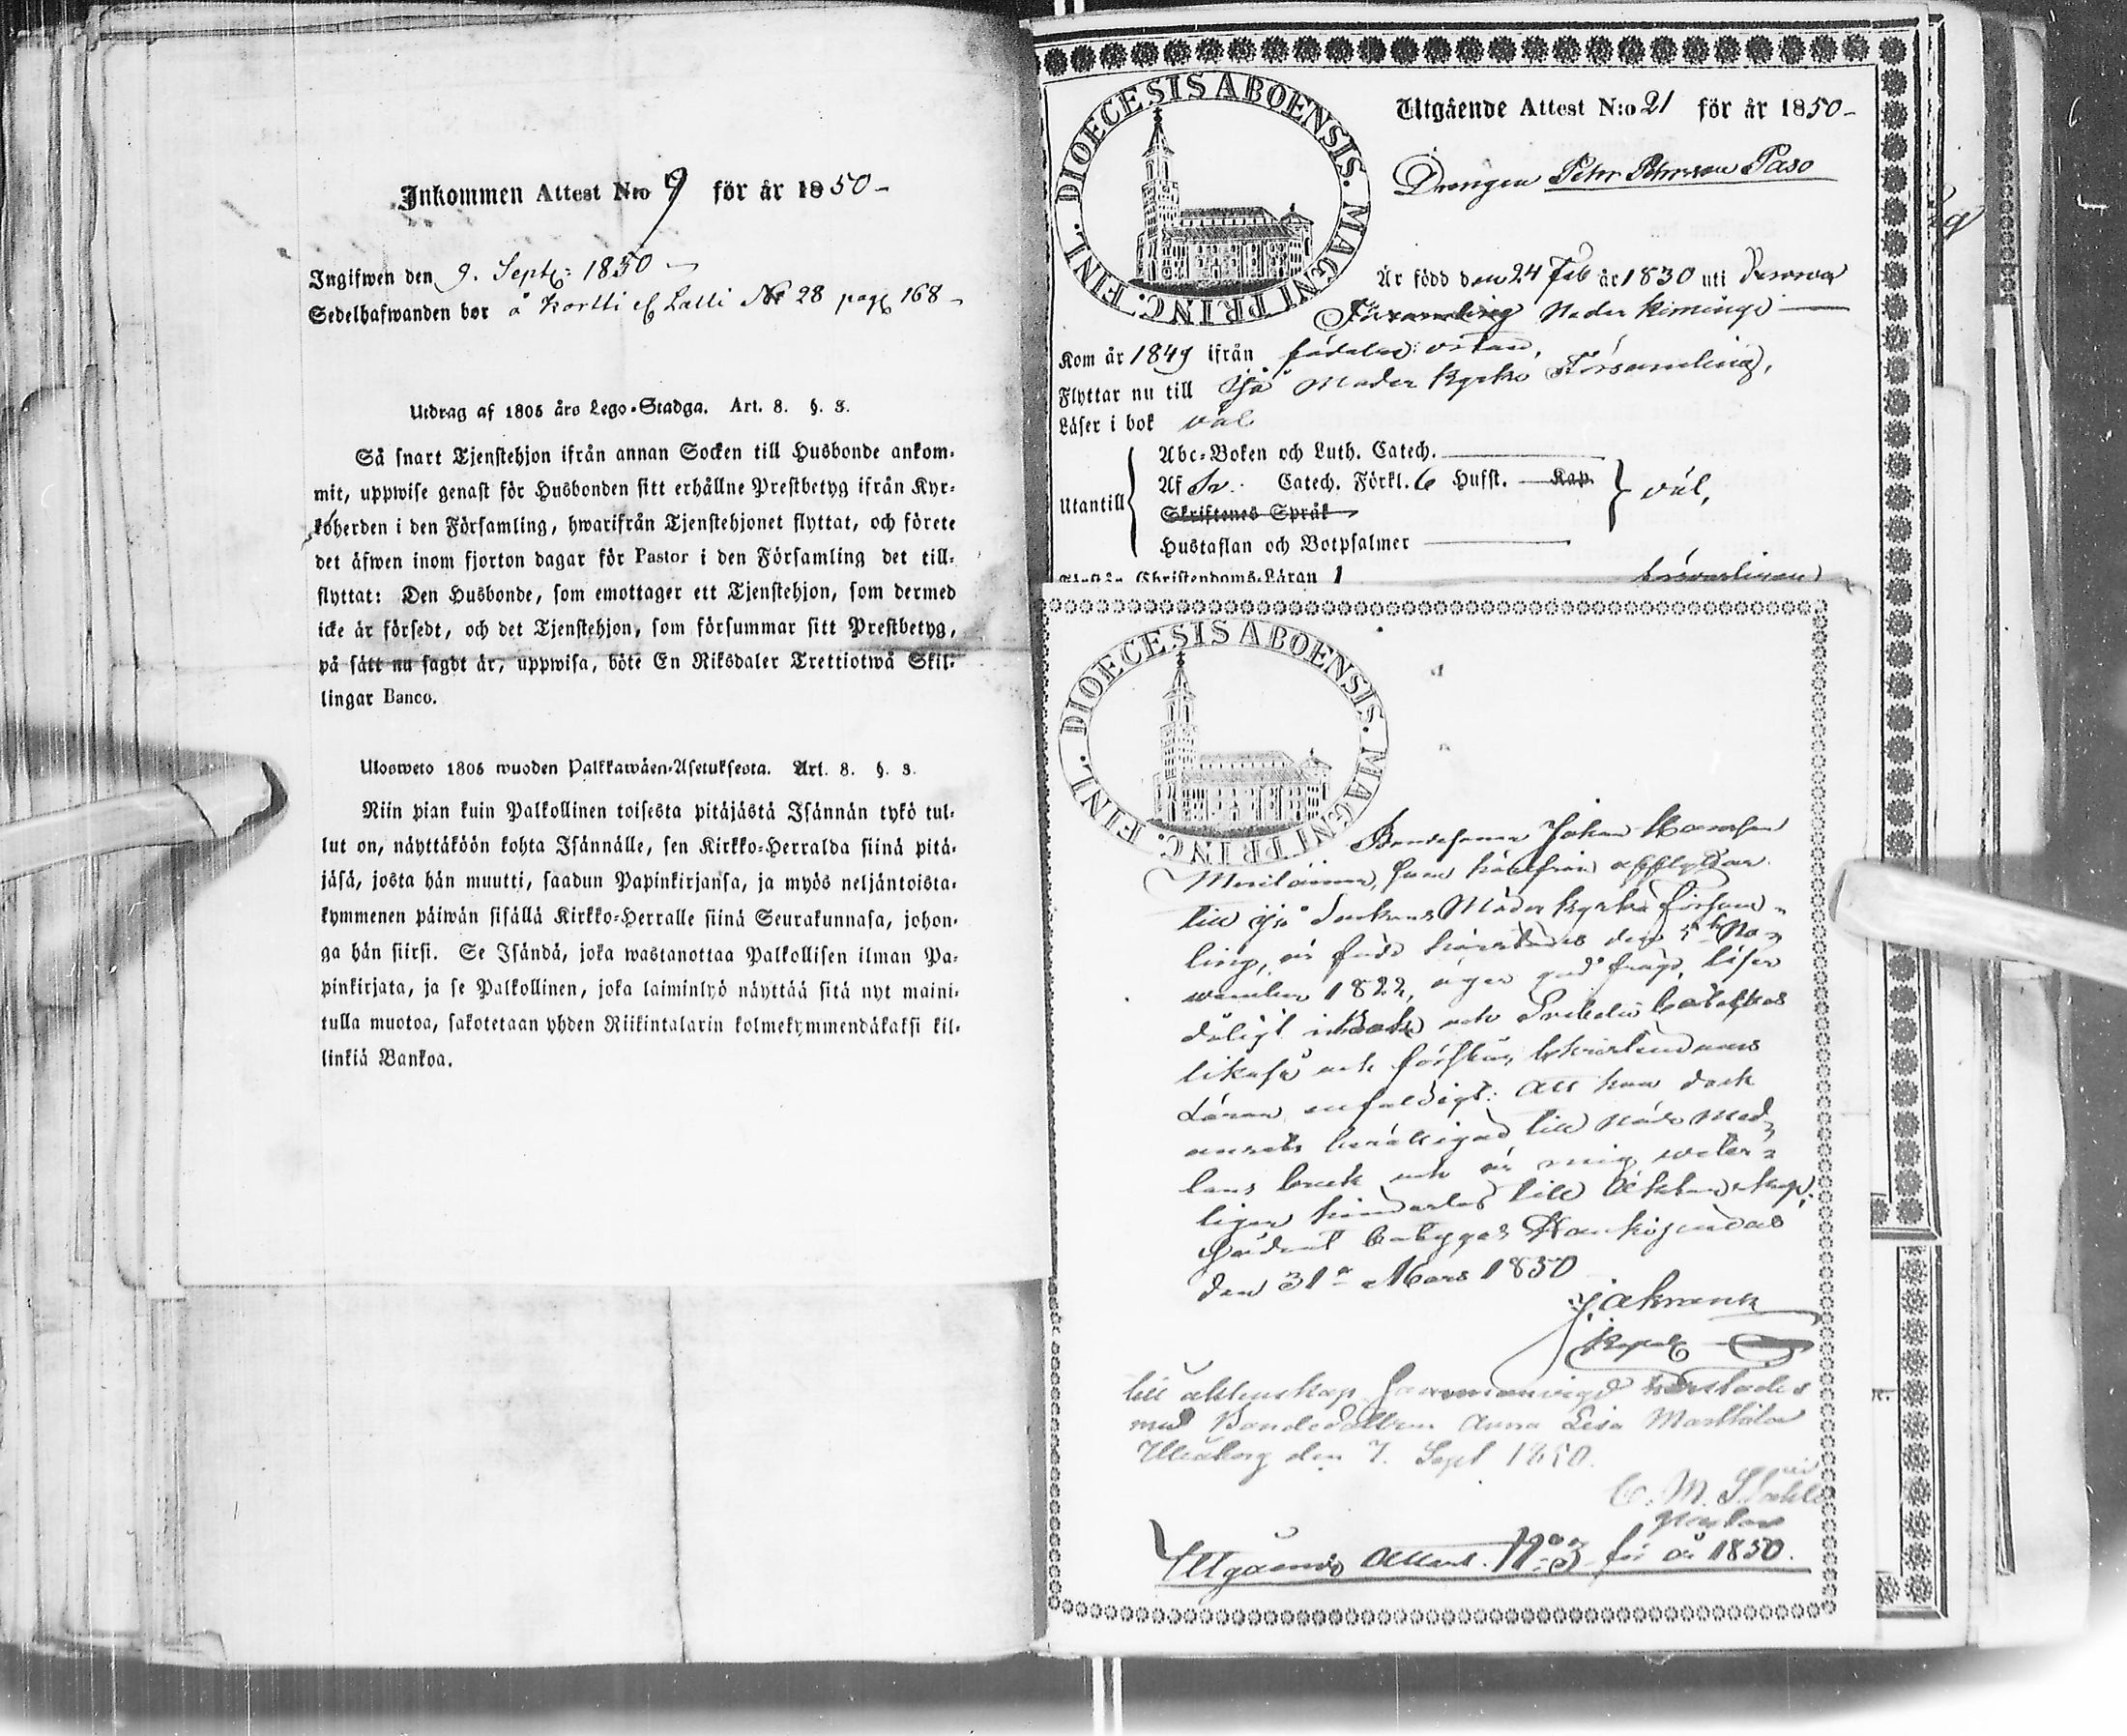 Inkommen Attest N:o 9 för år 1850 –
Ingifwen den 9. Sept: 1850 –
Sedelhafwanden bor å Kortti ell Latti N: 28 pag 168 –
Utdrag af 1805 års Lego-Stadga. Art. 8. §. 3.
Så snart Tjenstehjon ifrån annan Socken till Husbonde ankom-
mit, uppwise genast för Husbonden sitt erhållne Prestbetyg ifrån Kyr-
koherden i den Församling, hwarifrån Tjenstehjonet flyttat, och förete
det äfwen inom fjorton dagar för Pastor i den Församling det till-
flyttat: Den Husbonde, som emottager ett Tjenstehjon, som dermed
icke är försedt, och det Tjenstehjon, som försummar sitt Prestbetyg,
på sätt nu sagdt är, uppwisa, böte En Riksdaler Trettiotwå Skil-
lingar Banco.
Ulosweto 1805 wuoden Palkkawäen-Asetuksesta. Art. 8. §. 3.
Niin pian kuin Palkollinen toisesta pitäjästä Isännän tykö tul-
lut on, näyttäköön kohta Isännälle, sen Kirkko-Herralda siinä pitä-
jäsä, josta hän muutti, saadun Papinkirjansa, ja myös neljäntoista-
kymmenen päiwän sisällä Kirkko-Herralle siinä Seurakunnasa, johon-
ga hän siirsi. Se Isändä, joka wastanottaa Palkollisen ilman Pa-
pinkirjata, ja se Palkollinen, joka laiminlyö näyttää sitä nyt maini-
tulla muotoa, sakotetaan yhden Riikintalarin kolmekymmendäkaksi kil-
linkiä Bankoa.
DIOECESIS ABOENSIS. MAGNI PRINC. FINL.
Utgående Attest N:o 21 för år 1850 –
Drängen Petr Petersson Paso
Är född den 24 Feb år 1830 uti
Församling Neder Kiminge
Kom år 1849 ifrån födelse orten,
Flyttar nu till Ijo Moder Kyrko Församling,
Läser i bok väl
Utantill
Abc-Boken och Luth. Catech.
Af Sv. Catech. Förkl. 6 Husst. Kap.
Skriftenes Språk
väl,
Hustaflan och Botpsalmer
Christendoms-Läran försvarligen
DIOECESIS ABOENSIS. MAGNI PRINC. FINL.
Bondesonen Johan Hansson
Meriläinen, som härifrån afflyttar
till Ijo Sockens Moder Kyrko Försam-
ling, är född härstädes den 5 No-
vember 1822, äger god frägd, läser
dåligt i Bok och Svebelii Cateches
likaså och förstår Christendoms
Läran enfaldigt: Att han dock
ansets berättigad till Nåde med-
lens bruk och är mig veter-
ligen hinderlös till Äktenskap.
Sådant betygas Haukipudas
den 31 Mars 1850
Kapel
till äktenskap sammanvigd härstädes
med Bondedottren Anna Lisa Marttila
Uleåborg den 7. Sept 1850.
C. M.
pastor
Utgående Attest. N:o 3 för år 1850.